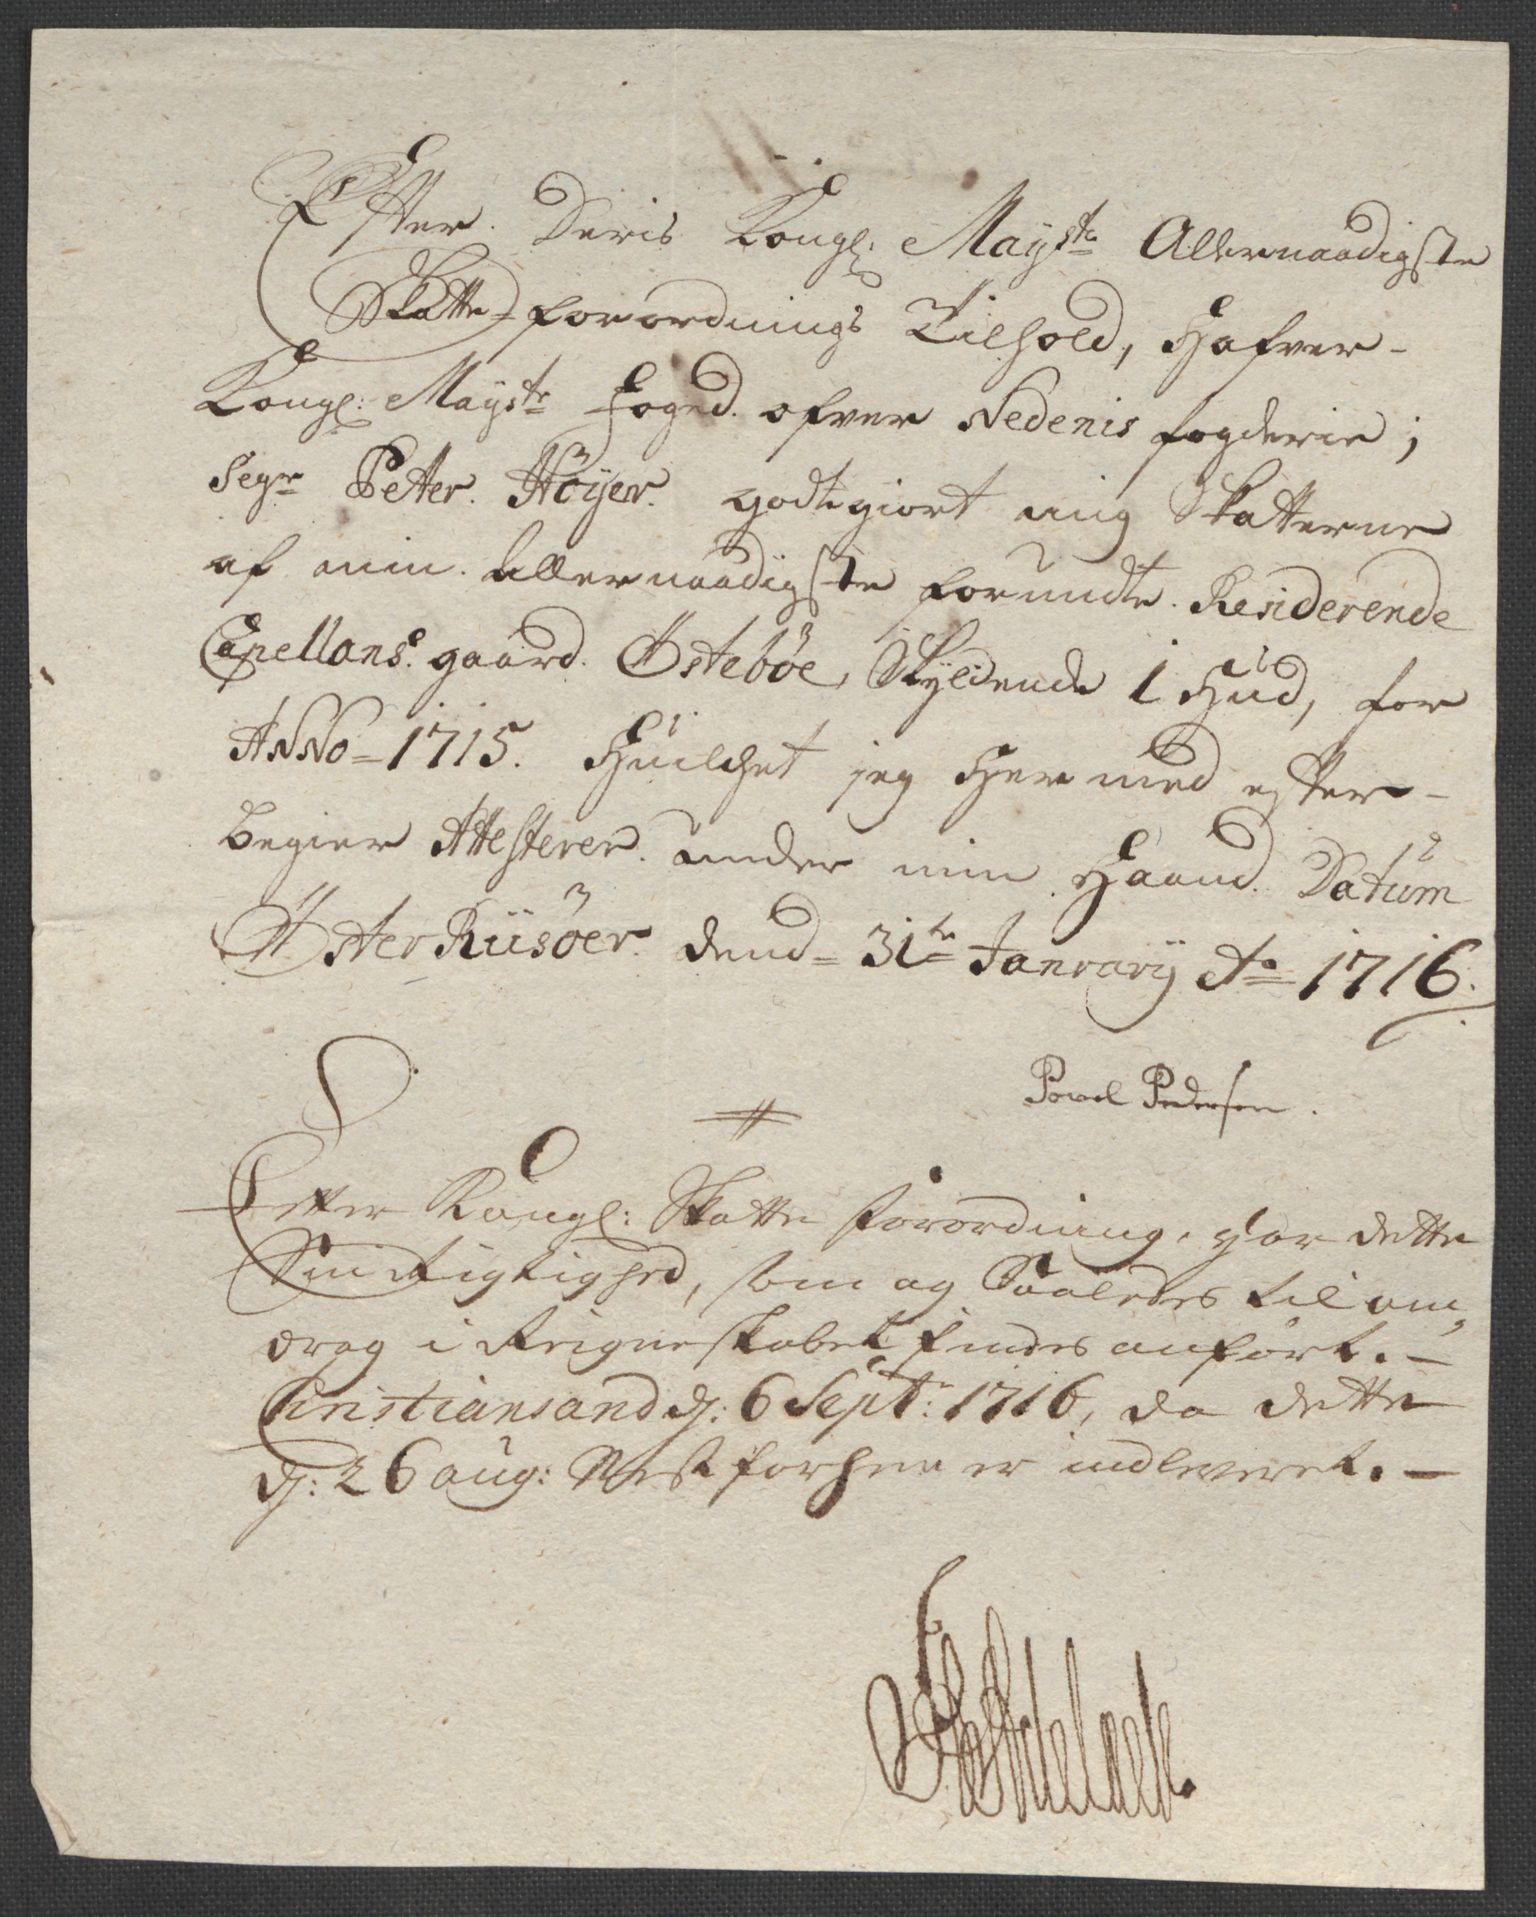 Efter Deris Kongl: Mayst: Allernaadigste
Skatte-forordnings Tilhold, Hafver-
Kongl: Mayst: foged ofver Nedenis fogderie;
Segr Peter Höyer. godtgiort mig Skatterne
af min Allernaadigste forundte Residerende
Capellans gaard. Østebøe, Skyldende 1 Hud, for
ANNo=1715. Huilchet jeg Hermed efter-
begier Attesterer. under min Haand. Datum
ØsterRiisöer. dend= 31te January Ao 1716.
Powel Pedersen.
Efter Kongl: Skatte forordning, har dette
Sin Rigtighed, som og Saaledes til um,
drag i Reigneskabet findes anført.-
Christiansand d: 6 Sept: 1716, da dette
d: 26 aug: Nest forhen er indleveret.-